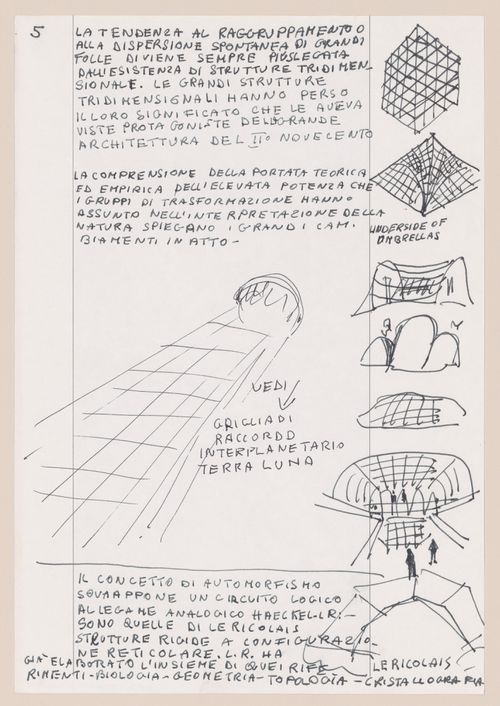 5
LA TENDENZA AL RAGGRUPPAMENTO O
ALLA DISPERSIONE SPONTANEA DI GRANDI
FOLLE DIVIENE SEMPRE PIÙ SLEGATA
DALL'ESISTENZA DI STRUTTURE TRIDIMEN_
SIONALE. LE GRANDI STRUTTURE
TRIDIMENSIONALI HANNO PERSO
IL LORO SIGNIFICATO CHE LE AVEVA
VISTE PROTAGONISTE DELLA GRANDE
ARCHITETTURA DEL IIº NOVECENTO
LA COMPRENSIONE DELLA PORTATA TEORICA
ED EMPIRICA DELL'ELEVATA POTENZA CHE
I GRUPPI DI TRASFORMAZIONE HANNO
ASSUNTO NELL'INTERPRETAZIONE DELLA
NATURA SPIEGANO I GRANDI CAM.
BIAMENTI IN ATTO -
UNDERSIDE OF
UMBRELLAS
VEDI
GRIGLIA DI
RACCORDO
INTERPLANETARIO
TERRA LUNA
IL CONCETTO DI AUTOMORFISMO
SOVRAPPONE UN CIRCUITO LOGICO
AL LEGAME ANALOGICO HAECKEL-L.R. -
SONO QUELLE DI LERICOLAIS
STRUTTURE RIGIDE A CONFIGURAZIO_
NE RETICOLARE. L.R. HA
GIÀ ELABORATO L'INSIEME DI QUEI RIFE
RIMENTI - BIOLOGIA - GEOMETRIA - TOPOLOGIA - CRISTALLOGRAFIA
LERICOLAIS